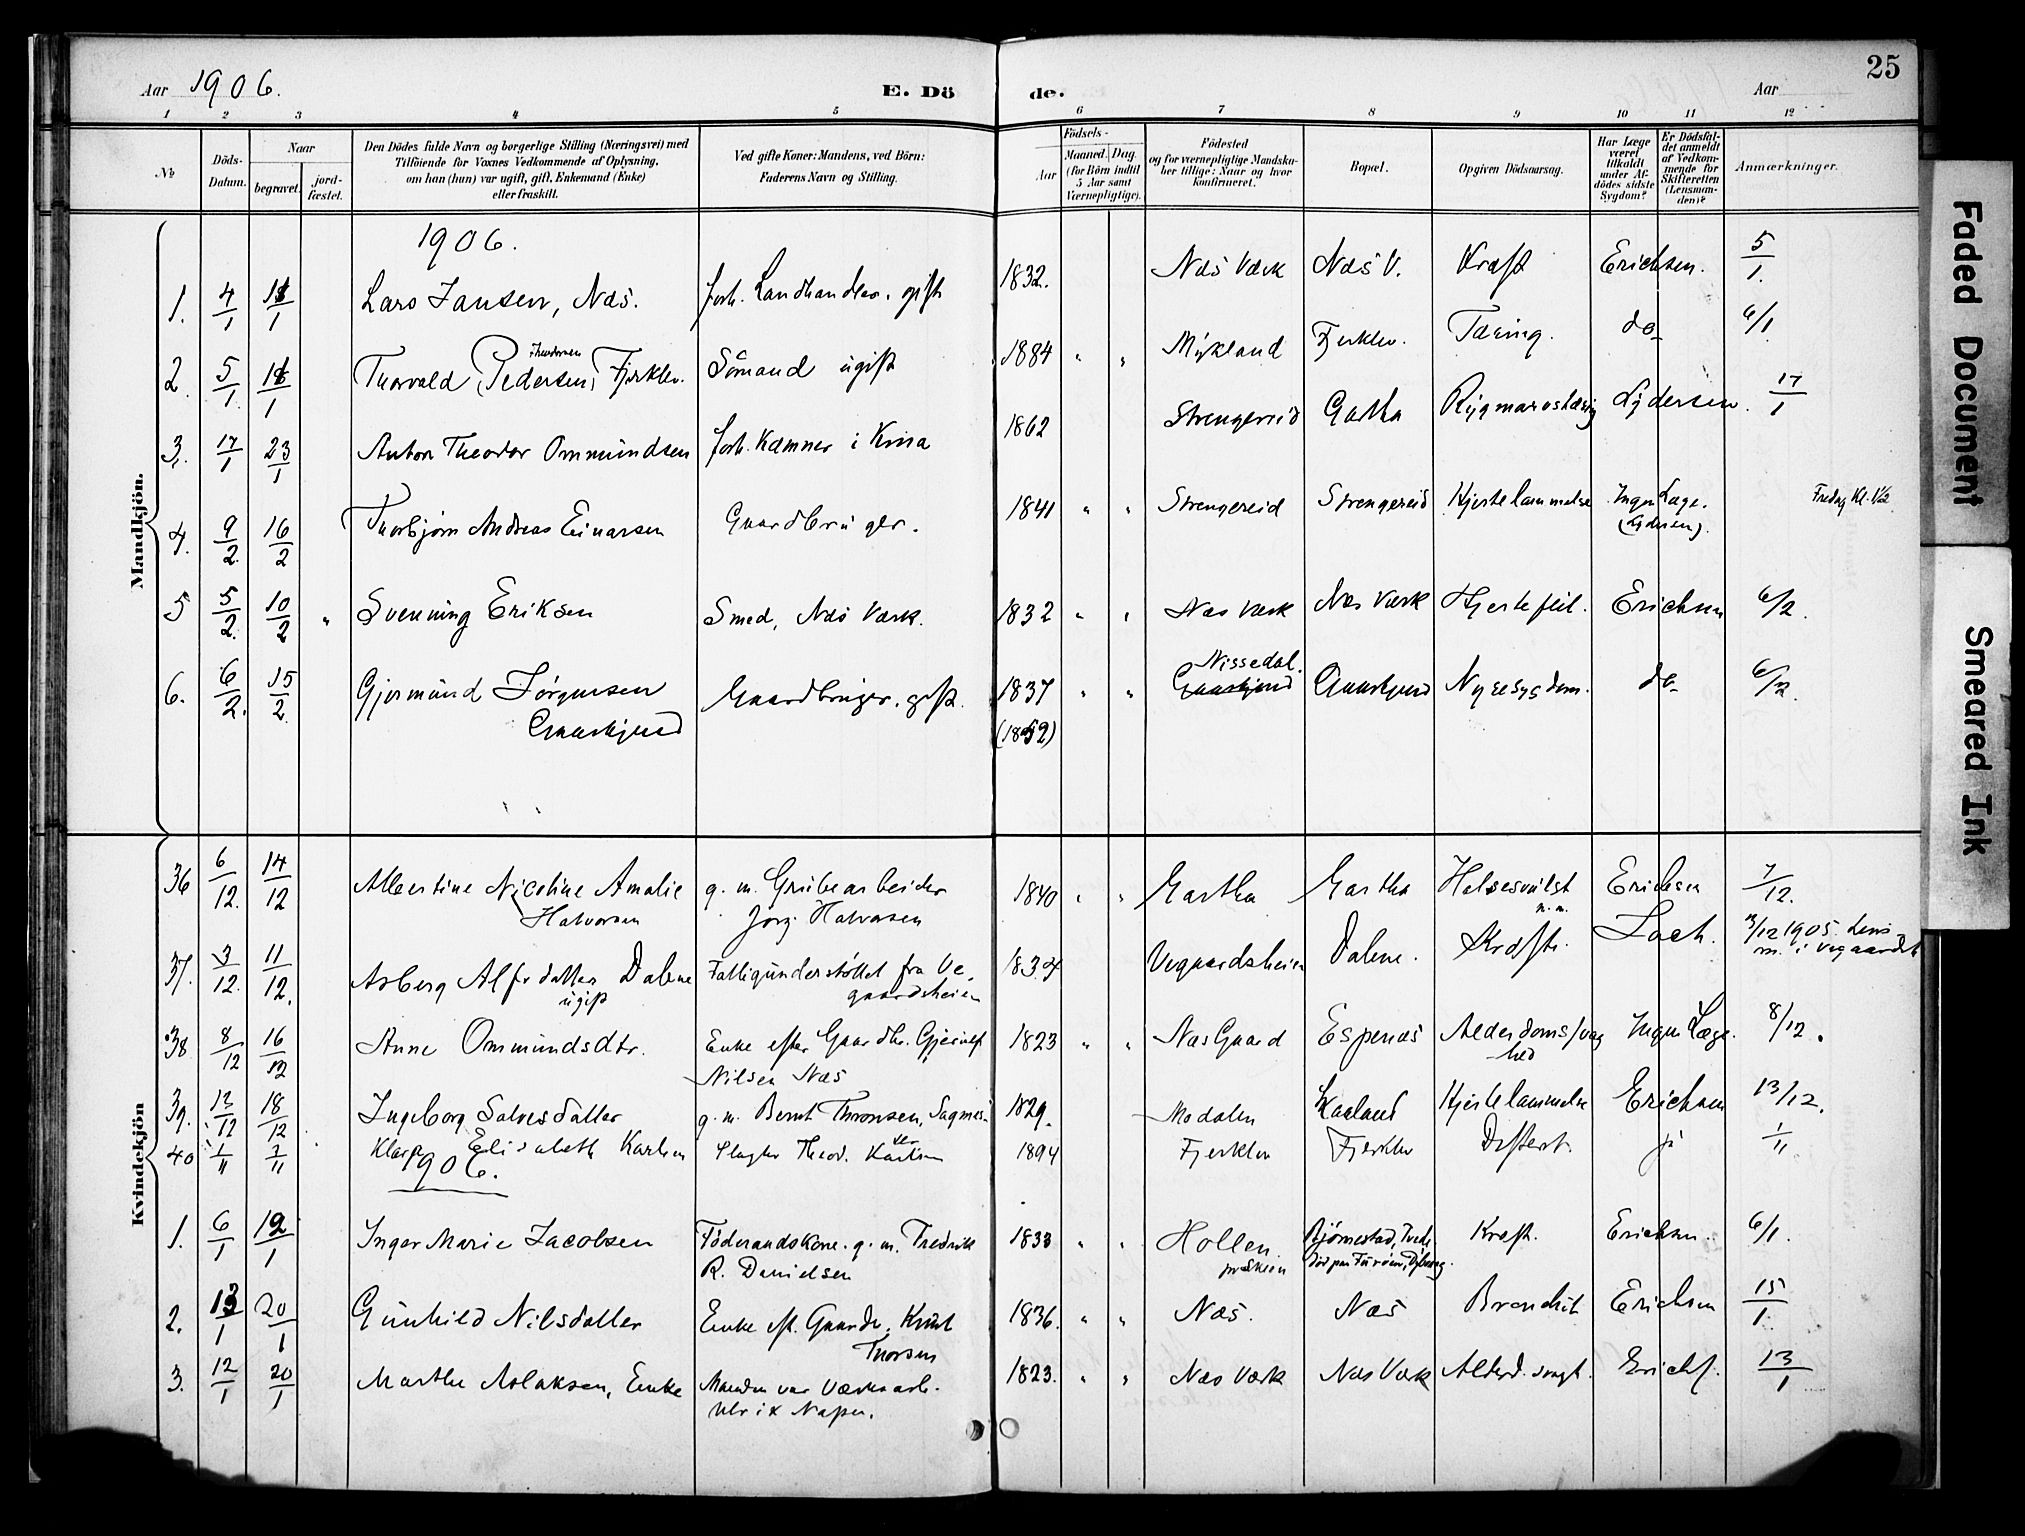 25
Aar 1906.
E. Dö
de.
Aar
1 2 3 4 5 6 7 8 9 10 11 12
№
Döds-Datum.
Naar
begravet.
jord-fæstet.
Den Dödes fulde Navn og borgerlige Stilling (Næringsvei) med
Tilföiende for Voxnes Vedkommende af Oplysning,
om han (hun) var ugift, gift, Enkemand (Enke)
eller fraskilt.
Ved gifte Koner: Mandens, ved Börn:
Faderens Navn og Stilling.
Födsels-
Aar
Maaned. Dag.
(for Börn indtil
5 Aar samt
Værnepligtige).
Födested
og for værnepligtige Mandska-
ber tillige: Naar og hvor
konfirmeret.
Bopæl.
Opgiven Dödsaarsag.
Har Læge
været
tilkaldt
under Af-
dödes sidste
Sygdom?
Er Dödsfal-
det anmeldt
af Vedkom-
mende for
Skifteretten
(Lensman-
den)?
Anmærkninger.
Mandkjön.
1906.
1. 4/1 11/1 Lars Jansen, Næs. forh. Landhandler. gift 1832. Næs Værk Næs V. Kræft Erichsen. 5/1.
2. 5/1. 11/1 Thorvald (Pedersen) Fjerklev. Sömand ugift 1884 " " Mykland Fjerklev. Tæring. do 6/1.
3. 17/1 23/1 Anton Theodor Ommundsen forh. Kæmner i Kina 1862 Strengereid Gartha Rygmarvstæring Lydersen. 17/1
4. 9/2. 16/2 Thorbjørn Andreas Einarsen Gaardbruger. 1841 " " Strengereid Strengereid Hjertelammelse Ingen Læge. Fredag Kl. 1½
(Lydersen).
5 5/2. 10/2 " Svenning Eriksen Smed, Næs Værk. 1832 " " Næs Værk Næs Værk Hjertefeil. Erichsen 6/2.
Nissedal.
6. 6/2. 15/2 Gjermund Jörgensen Gaardbruger. gift. 1837 " " Nyresygdom. do 6/2.
(1852)
Kvindekjön
36 6/12. 14/12 Albertine Nicoline Amalie g. m. Grubearbeider 1840 " " Gartha Gartha Halsesvulst Erichsen 7/12.
Halvorsen Jörg. Halvorsen m. m.
37. 3/12. 11/12. Asberg Alfsdatter Dalene Fattigunderstöttet fra Ve- 1834 Vegaardsheien Dalene. Kræft. Loch. 12 1905. Lens-
ugift gaardsheien m. i Vegaardsh
38 8/12 16/12 Anne Ommundsdtr. Enke efter Gaardbr. Gjerulf 1823 " " Næs Gaard Espenæs Alderdomssvag Ingen Læge. 8/12.
Nilsen Næs hed
39. 13/12 18/12 Ingeborg Salvesdatter g. m. Bernt Thronsen, Sagmes- 1829. Modalen Kaaland Hjertelammelse Erichsen 13/12.
ter
40 1/11 7/11 Elisabeth Karlsen Slagter Theod. Karlsen 1894 Fjerklev Fjerklev Difterit. ja 1/11
1906.
1. 6/1 12/1 Inger Marie Jacobsen Föderaadskone. g. m. Fredrik 1833 " " Hollen Bjørnestad, Tvede Kræft. Erichsen. 6/1.
R. Danielsen pr Skien
2. 13/1 20/1 Gunhild Nilsdatter Enke eft. Gaardb. Knut 1836. " " Næs. Næs Bronchit Erichsen 15/1.
Thorsen
3. 12/1 20/1 Marthe Aslaksen, Enke Manden var Værksarb. 1823. " " Næs Værk Næs Værk Alderd. svagh. Erichs. 13/1
Ulrik
Faded Document
Smeared Ink